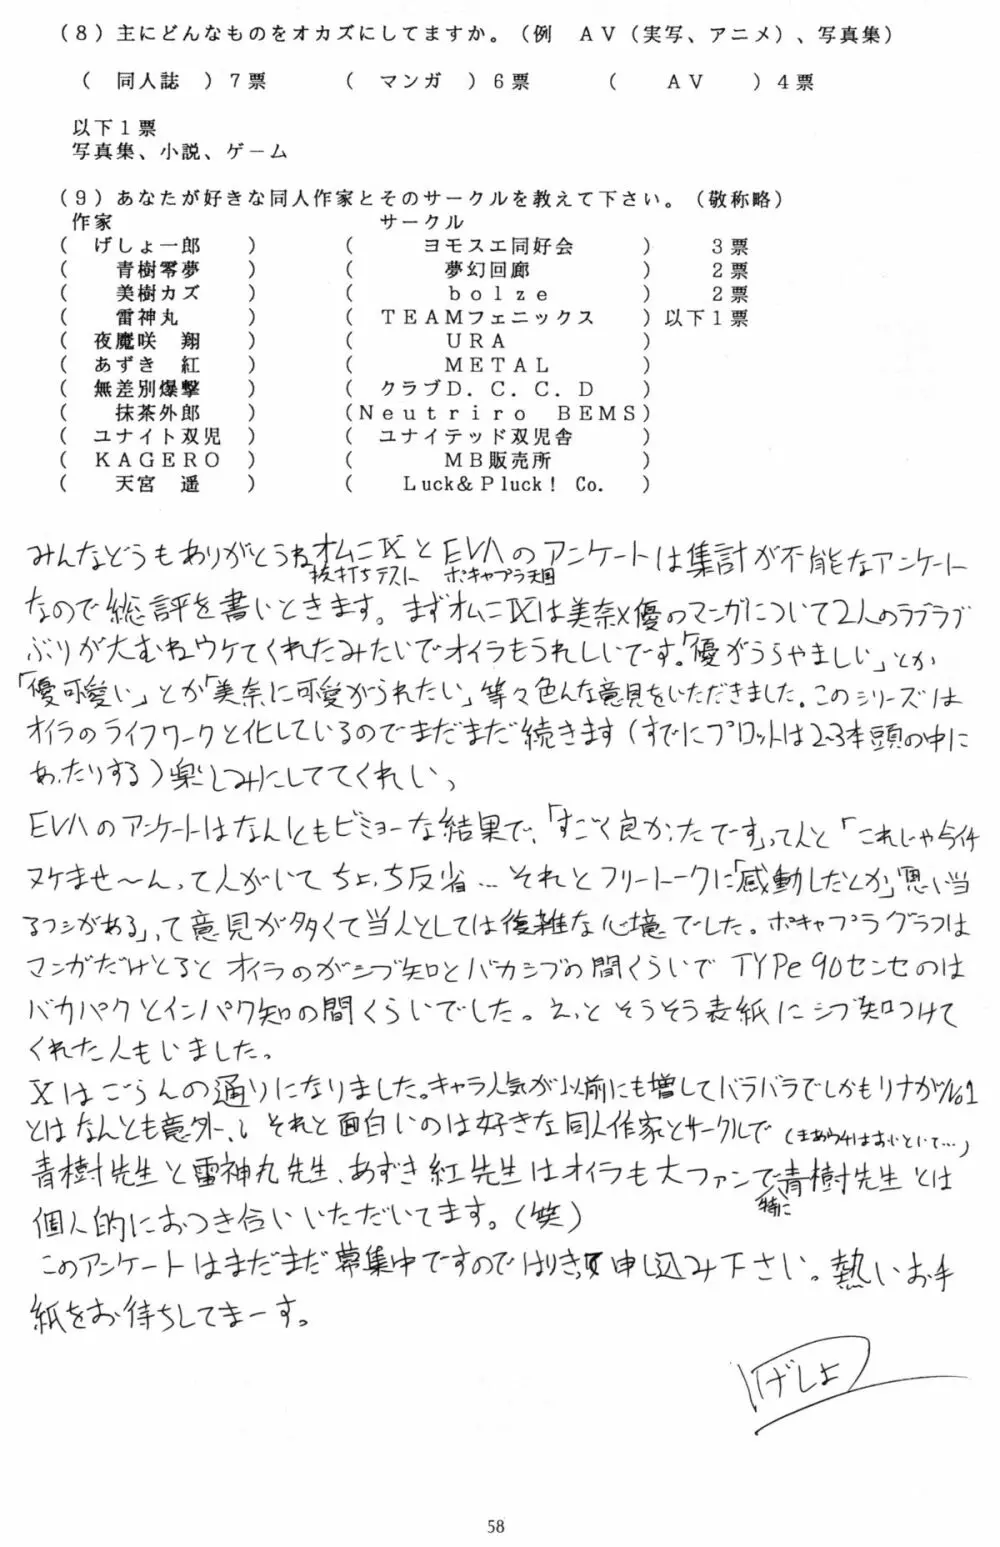 (8)主にどんなものをオカズにしてますか。(例　AV(実写、アニメ)、写真集)
(　同人誌　)7票　(　マンガ　)6票　(　AV　)4票
以下1票
写真集、小説、ゲーム
(9)あなたが好きな同人作家とそのサークルを教えて下さい。(敬称略)
作家　サークル
(　げしょ一郎　)　(　ヨモスエ同好会　)　3票
(　青樹零夢　)　(　夢幻回廊　)　2票
(　美樹カズ　)　(　bolze　)　2票
(　雷神丸　)　(　TEAMフェニックス　)以下1票
(　夜魔咲　翔　)　(　URA　)
(　あずき　紅　)　(　METAL　)
(　無差別爆撃　)　(　クラブD.C.C.D　)
(　抹茶外郎　)　(Neutriro　BEMS)
(　ユナイト双児　)　(　ユナイテッド双児舎　)
(　KAGERO　)　(　MB販売所　)
(　天宮　遥　)　(　Luck&Pluck! Co.　)
みんなどうもありがとうねオムニIXとEVAのアンケートは集計が不能なアンケート
抜打ちテスト　ボキャプラ天国
なので総評を書いときます。まずオムニIXは美奈×優のマンガについて2人のラブラブ
ぶりが大むねウケてくれたみたいでオイラもうれしいです。「優がうらやましい」とか
「優可愛い」とか「美奈に可愛がられたい」等々色んな意見をいただきました。このシリーズは
オイラのライフワークと化しているのでまだまだ続きます(すでにプロットは2~3本頭の中に
あったりする)楽しみにしててくれいっ
EVAのアンケートはなんともビミョーな結果で、「すごく良かったです」って人と「これじゃ今イチ
ヌケませ〜ん」って人がいてちょっち反省…それとフリートークに「感動したとか」「思い当
るフシがある」って意見が多くて当人としては複雑な心境でした。ボキャプラグラフは
マンガだけとるとオイラのがシブ知とバカシブの間くらいでTYPe90センセのは
バカパクとインパク知の間くらいでした。えっとそうそう表紙にシブ知つけて
くれた人もいました。
Xはごらんの通りになりました。キャラ人気が以前にも増してバラバラでしかもリナがNo1
とはなんとも意外っ、それと面白いのは好きな同人作家とサークルで(まあウチはおいといて…)
青樹先生と雷神丸先生、あずき紅先生はオイラも大ファンで青樹先生とは
特に
個人的におつき合いいただいてます。(笑)
このアンケートはまだまだ募集中ですのではりきって申し込み下さい。熱いお手
紙をお待ちしてまーす。
げしょ
58